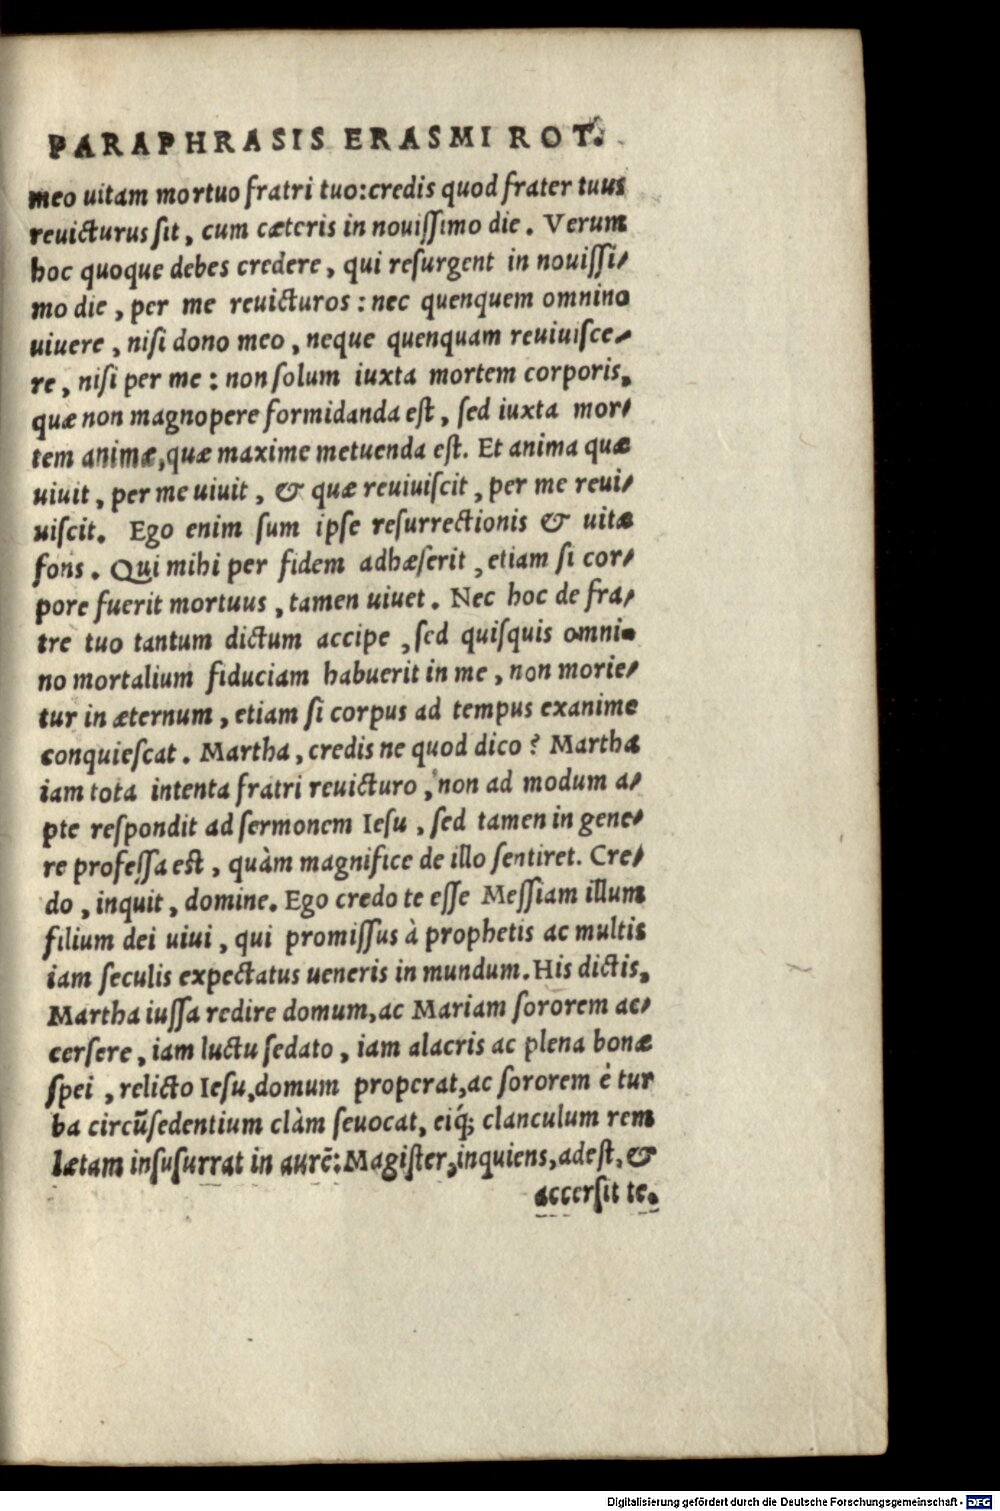 PARAPHRASIS ERASMI ROT.
meo uitam mortuo fratri tuo: credis quod frater tuus
reuicturus sit, cum cæteris in nouissimo die. Verum
hoc quoque debes credere, qui resurgent in nouissi/
mo die, per me reuicturos: nec quenquem omnino
uiuere, nisi dono meo, neque quenquam reuiuisce/
re, nisi per me: non solum iuxta mortem corporis,
quæ non magnopere formidanda est, sed iuxta mor/
tem animæ, quæ maxime metuenda est. Et anima quæ
uiuit, per me uiuit, & quæ reuiuiscit, per me reui/
uiscit. Ego enim sum ipse resurrectionis & uitæ
fons. Qui mihi per fidem adhæserit, etiam si cor/
pore fuerit mortuus, tamen uiuet. Nec hoc de fra/
tre tuo tantum dictum accipe, sed quisquis omni/
no mortalium fiduciam habuerit in me, non morie/
tur in æternum, etiam si corpus ad tempus exanime
conquiescat. Martha, credis ne quod dico? Martha
iam tota intenta fratri reuicturo, non ad modum a/
pte respondit ad sermonem Iesu, sed tamen in gene/
re professa est, quàm magnifice de illo sentiret. Cre/
do, inquit, domine. Ego credo te esse Messiam illum
filium dei uiui, qui promissus à prophetis ac multis
iam seculis expectatus ueneris in mundum. His dictis,
Martha iussa redire domum, ac Mariam sororem ac/
cersere, iam luctu sedato, iam alacris ac plena bonæ
spei, relicto Iesu, domum properat, ac sororem è tur
ba circũsedentium clàm seuocat, eiq́; clanculum rem
lætam insusurrat in aurẽ: Magister, inquiens, adest, &
accersit te.
Digitalisierung gefördert durch die Deutsche Forschungsgemeinschaft - DFG